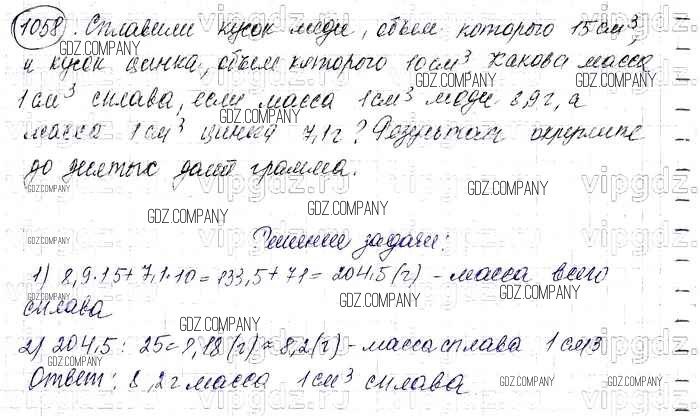 1058. Сплавили кусок меди, объем которого 15 см³,
и кусок цинка, объем которого 10 см³. Какова масса
1 см³ сплава, если масса 1 см³ меди 8,9 г, а
масса 1 см³ цинка 7,1 г? Результат округлите
до десятых долей грамма.
Решение задачи:
1) 8,9·15+7,1·10=133,5+71=204,5(г) - масса всего
сплава
2) 204,5:25=8,18(г)≈8,2(г) - масса сплава 1 см3
Ответ: 8,2г масса 1 см³ сплава
GDZ.COMPANY
vipgdz.ru